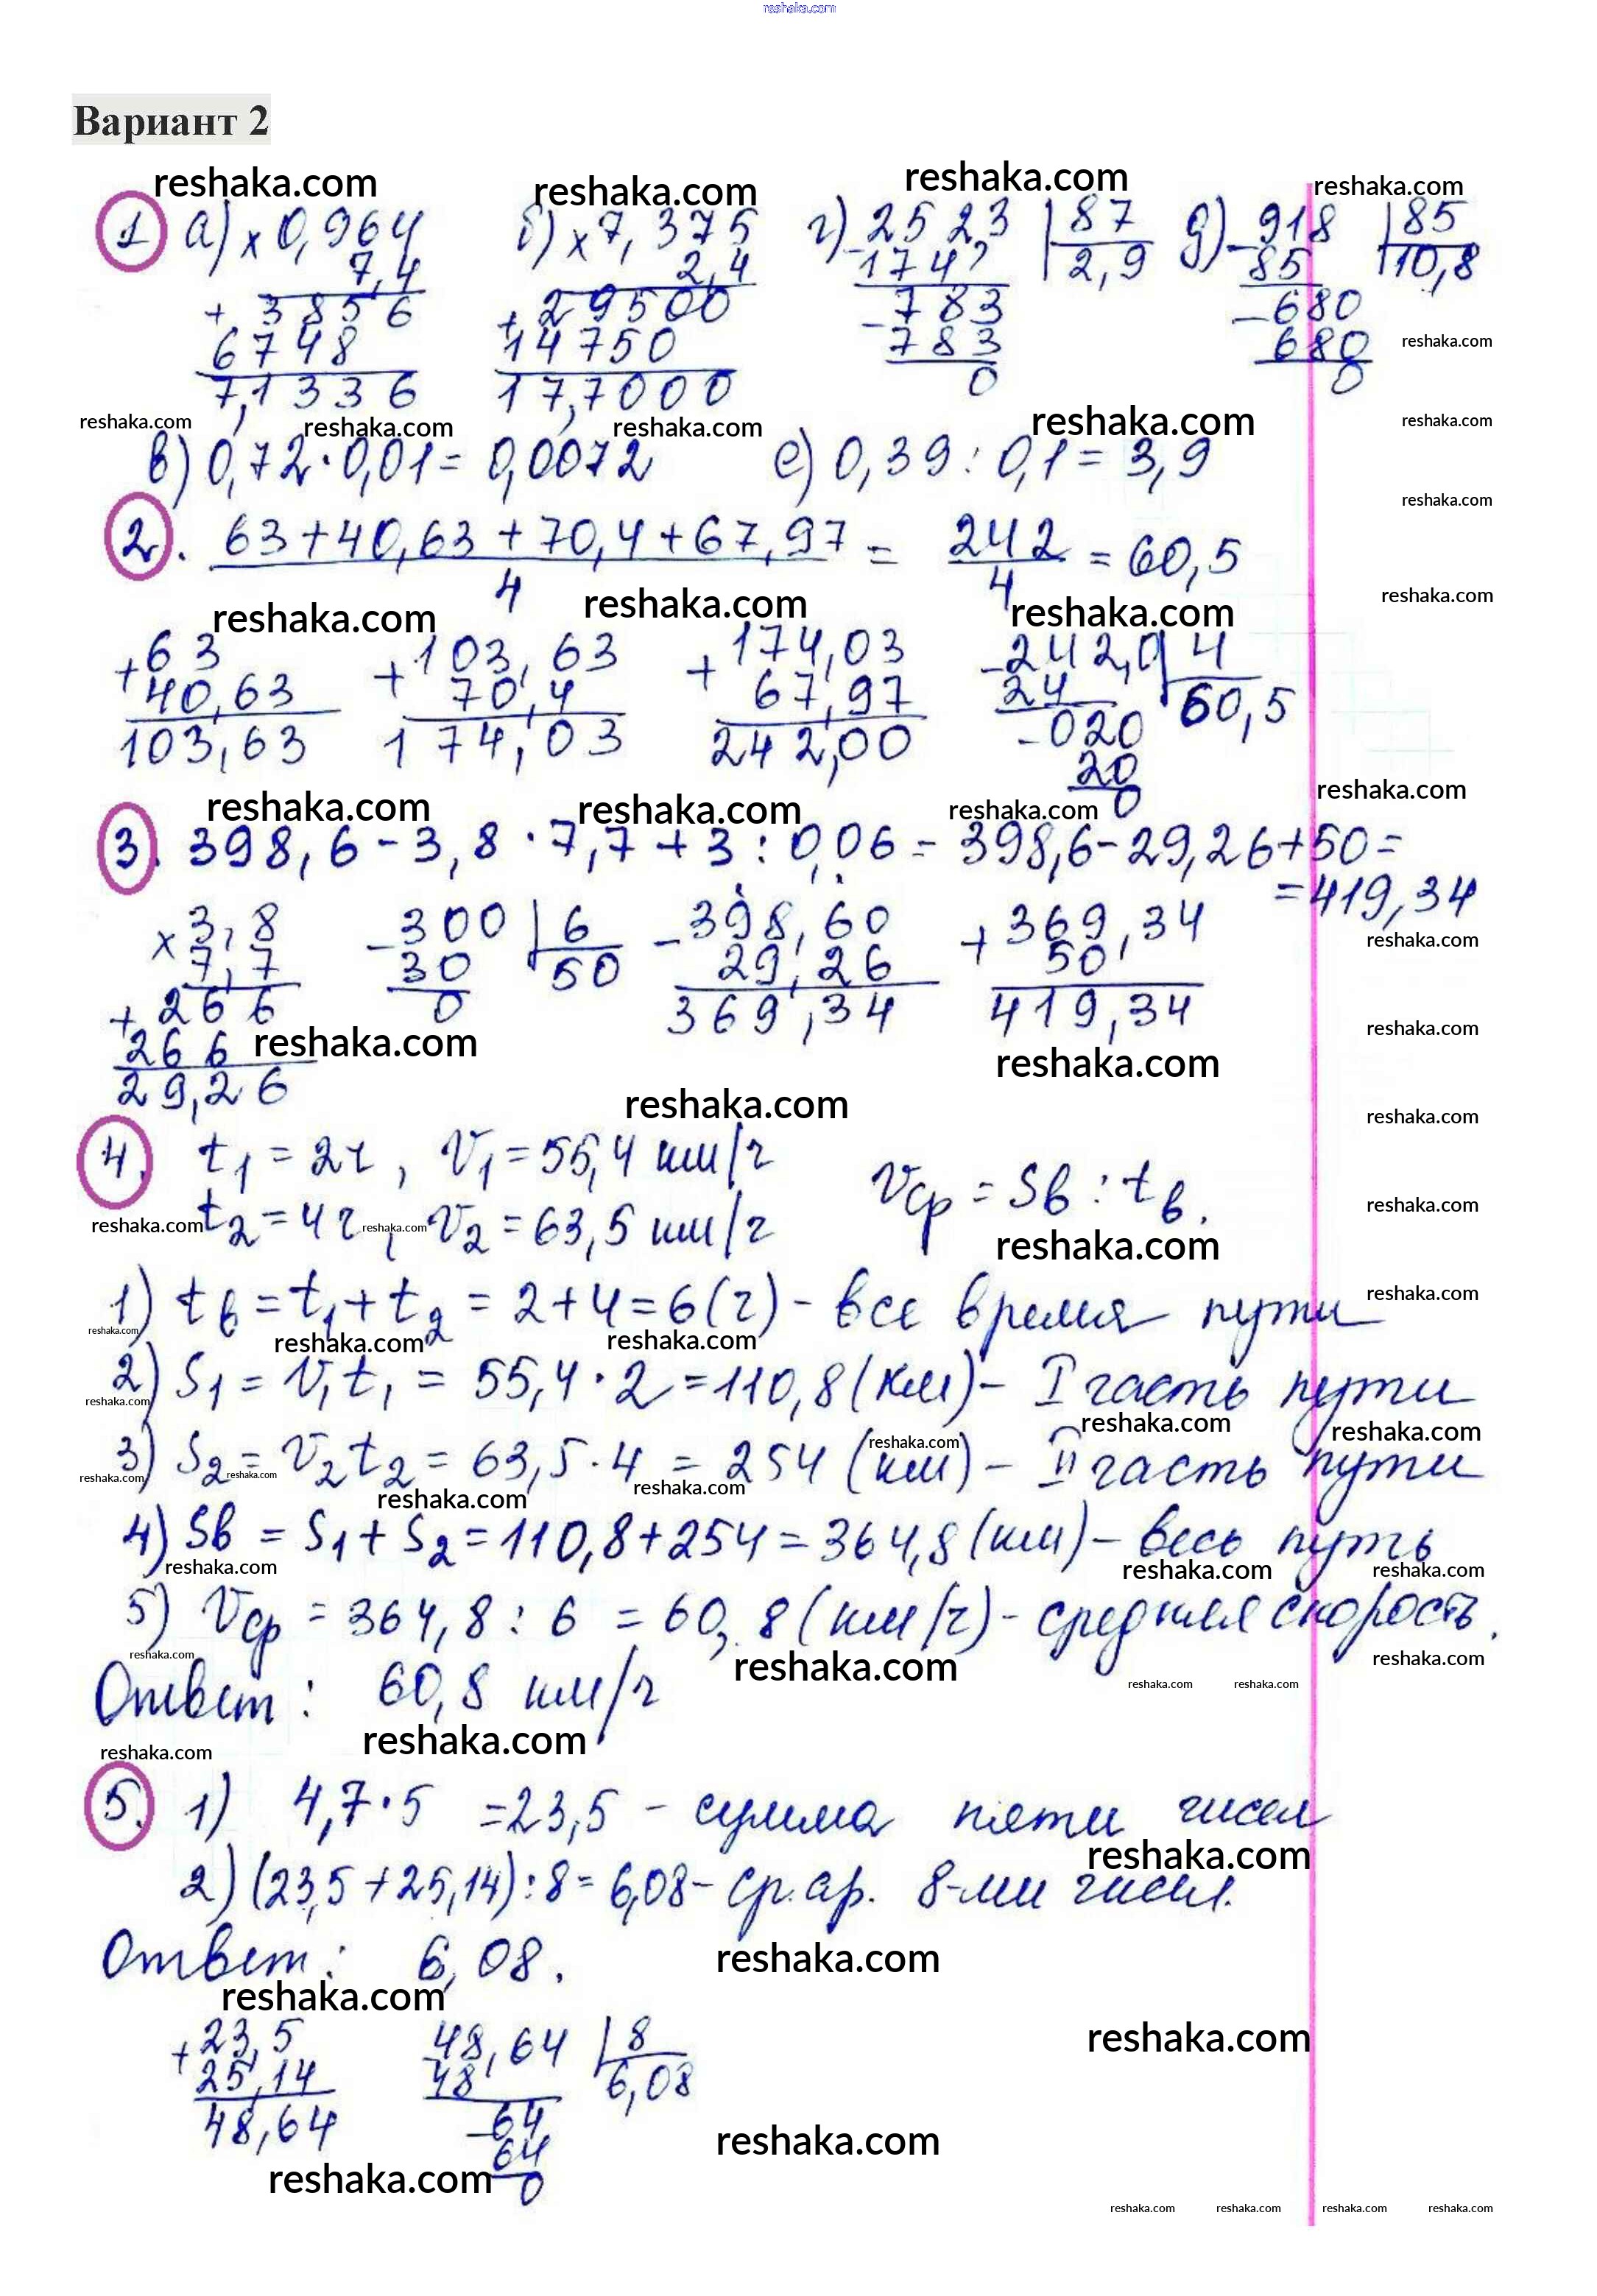 reshaka.com
Вариант 2
reshaka.com reshaka.com reshaka.com reshaka.com
1 а) × 0,964 б) × 7,375 г) - 2523 | 87 д) - 918 | 85
7,4 2,4 174 2,9 85 10,8
+ 3856 + 29500 - 783 - 680
6748 14750 783 680 reshaka.com
7,1336 17,7000 0 0
reshaka.com reshaka.com reshaka.com reshaka.com reshaka.com
в) 0,72·0,01= 0,0072 е) 0,39:0,1= 3,9
reshaka.com
2. 63+40,63+70,4+67,97 = 242 = 60,5
4 4
reshaka.com reshaka.com reshaka.com reshaka.com
+ 63 + 103,63 + 174,03 - 242,0 | 4
40,63 70,4 67,97 24 60,5
103,63 174,03 242,00 - 020
20
0
reshaka.com reshaka.com reshaka.com reshaka.com
3. 398,6 - 3,8 · 7,7 + 3 : 0,06 = 398,6-29,26+50=
=419,34
× 3,8 - 300 | 6 - 398,60 + 369,34
7,7 30 50 29,26 50 reshaka.com
+ 266 0 369,34 419,34
266 reshaka.com reshaka.com reshaka.com
29,26
reshaka.com reshaka.com
4. t1 = 2ч, V1=55,4 км/ч Vср = Sв : tв.
reshaka.com t2=4ч, reshaka.com V2 = 63,5 км/ч reshaka.com
reshaka.com
1) tв=t1+t2 = 2+4=6(ч) - все время пути reshaka.com
reshaka.com reshaka.com reshaka.com
2) S1 = V1t1 = 55,4·2=110,8(км)- I часть пути
reshaka.com reshaka.com reshaka.com
3) S2= V2t2 = 63,5·4 = 254 (км) - II часть пути
reshaka.com reshaka.com reshaka.com reshaka.com
reshaka.com
4) Sв = S1+S2=110,8+254=364,8(км)- весь путь
reshaka.com reshaka.com reshaka.com
5) Vср = 364,8 : 6 = 60,8 (км/ч)- средняя скорость.
reshaka.com reshaka.com reshaka.com
Ответ: 60,8 км/ч reshaka.com reshaka.com
reshaka.com reshaka.com
5. 1) 4,7·5 =23,5 - сумма пяти чисел
reshaka.com
2) (23,5+25,14):8=6,08- ср. ар. 8-ми чисел.
Ответ: 6,08. reshaka.com
reshaka.com
+ 23,5 48,64 | 8 reshaka.com
25,14 48 6,08
48,64 - 64 reshaka.com
64
reshaka.com 0
reshaka.com reshaka.com reshaka.com reshaka.com